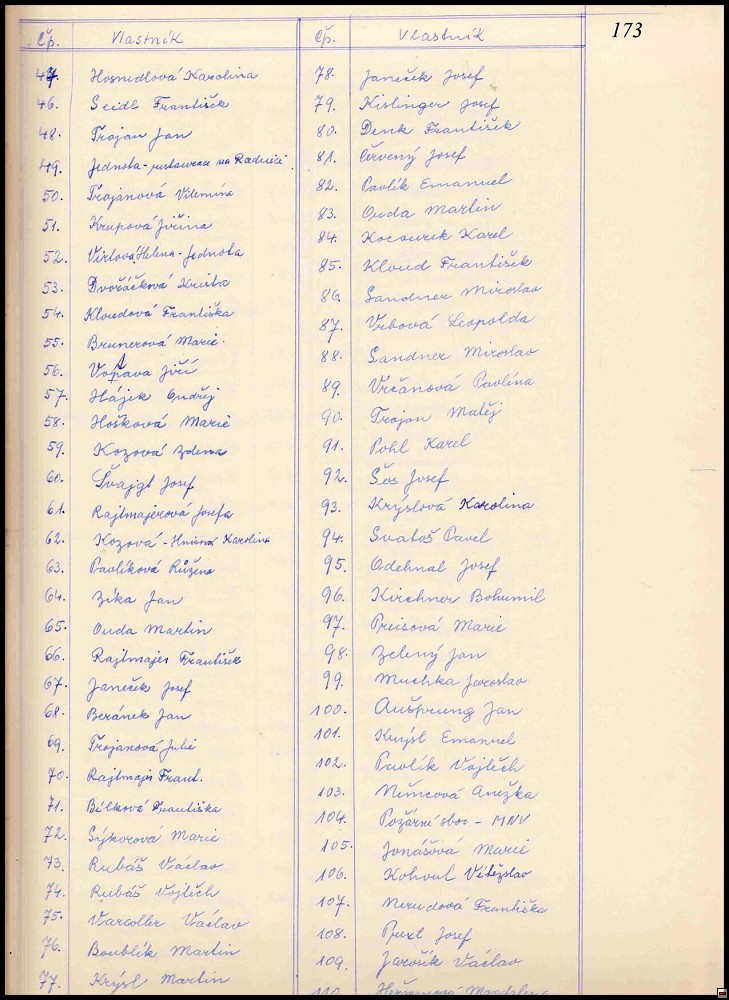 173
Čp. Vlastník
47. Hosnedlová Karolina
46. Seidl František
48. Trojan Jan
49. Jednota - restaurace na Radnici
50. Trojanová Vilemína
51. Krupová Jiřina
52. Virtová Helena - Jednota
53. Dvořáčková Krista
54. Kloudová Františka
55. Brunerová Marie.
56. Votava Jiří
57. Hájek Ondřej
58. Hošková Marie
59. Kozová Zdena
60. Švajgl Josef
61. Rajtmajerová Josefa
62. Kozová - Hniná Karolina
63. Pavlíková Růžena
64. Zíka Jan
65. Ouda Martin
66. Rajtmajer František
67. Janeček Josef
68. Beránek Jan
69. Trojanová Julie
70. Rajtmajer Frant.
71. Bílková Františka
72. Sýkorová Marie
73. Rubáš Václav
74. Rubáš Vojtěch
75. Václav
76. Boublík Martin
77. Krýsl Martin
Čp. Vlastník
78. Janeček Josef
79. Kislinger Josef
80. Denk František
81. Červený Josef
82. Pavlík Emanuel
83. Ouda Martin
84. Kocourek Karel
85. Kloud František
86. Sandner Miroslav
87. Vrbová Leopolda
88. Sandner Miroslav
89. Vrčánová Pavlína
90. Trojan Matěj
91. Pohl Karel
92. Šos Josef
93. Krýslová Karolina
94. Svatoš Pavel
95. Odehnal Josef
96. Kirchner Bohumil
97. Preisová Marie
98. Zelený Jan
99. Muchka Jaroslav
100. Aušprung Jan
101. Krýsl Emanuel
102. Pavlík Vojtěch
103. Němcová Anežka
104. Požární sbor - MNV
105. Jonášová Marie
106. Kohout Vítězslav
107. Nerudová Františka
108. Josef
109. Jarošík Václav
110.